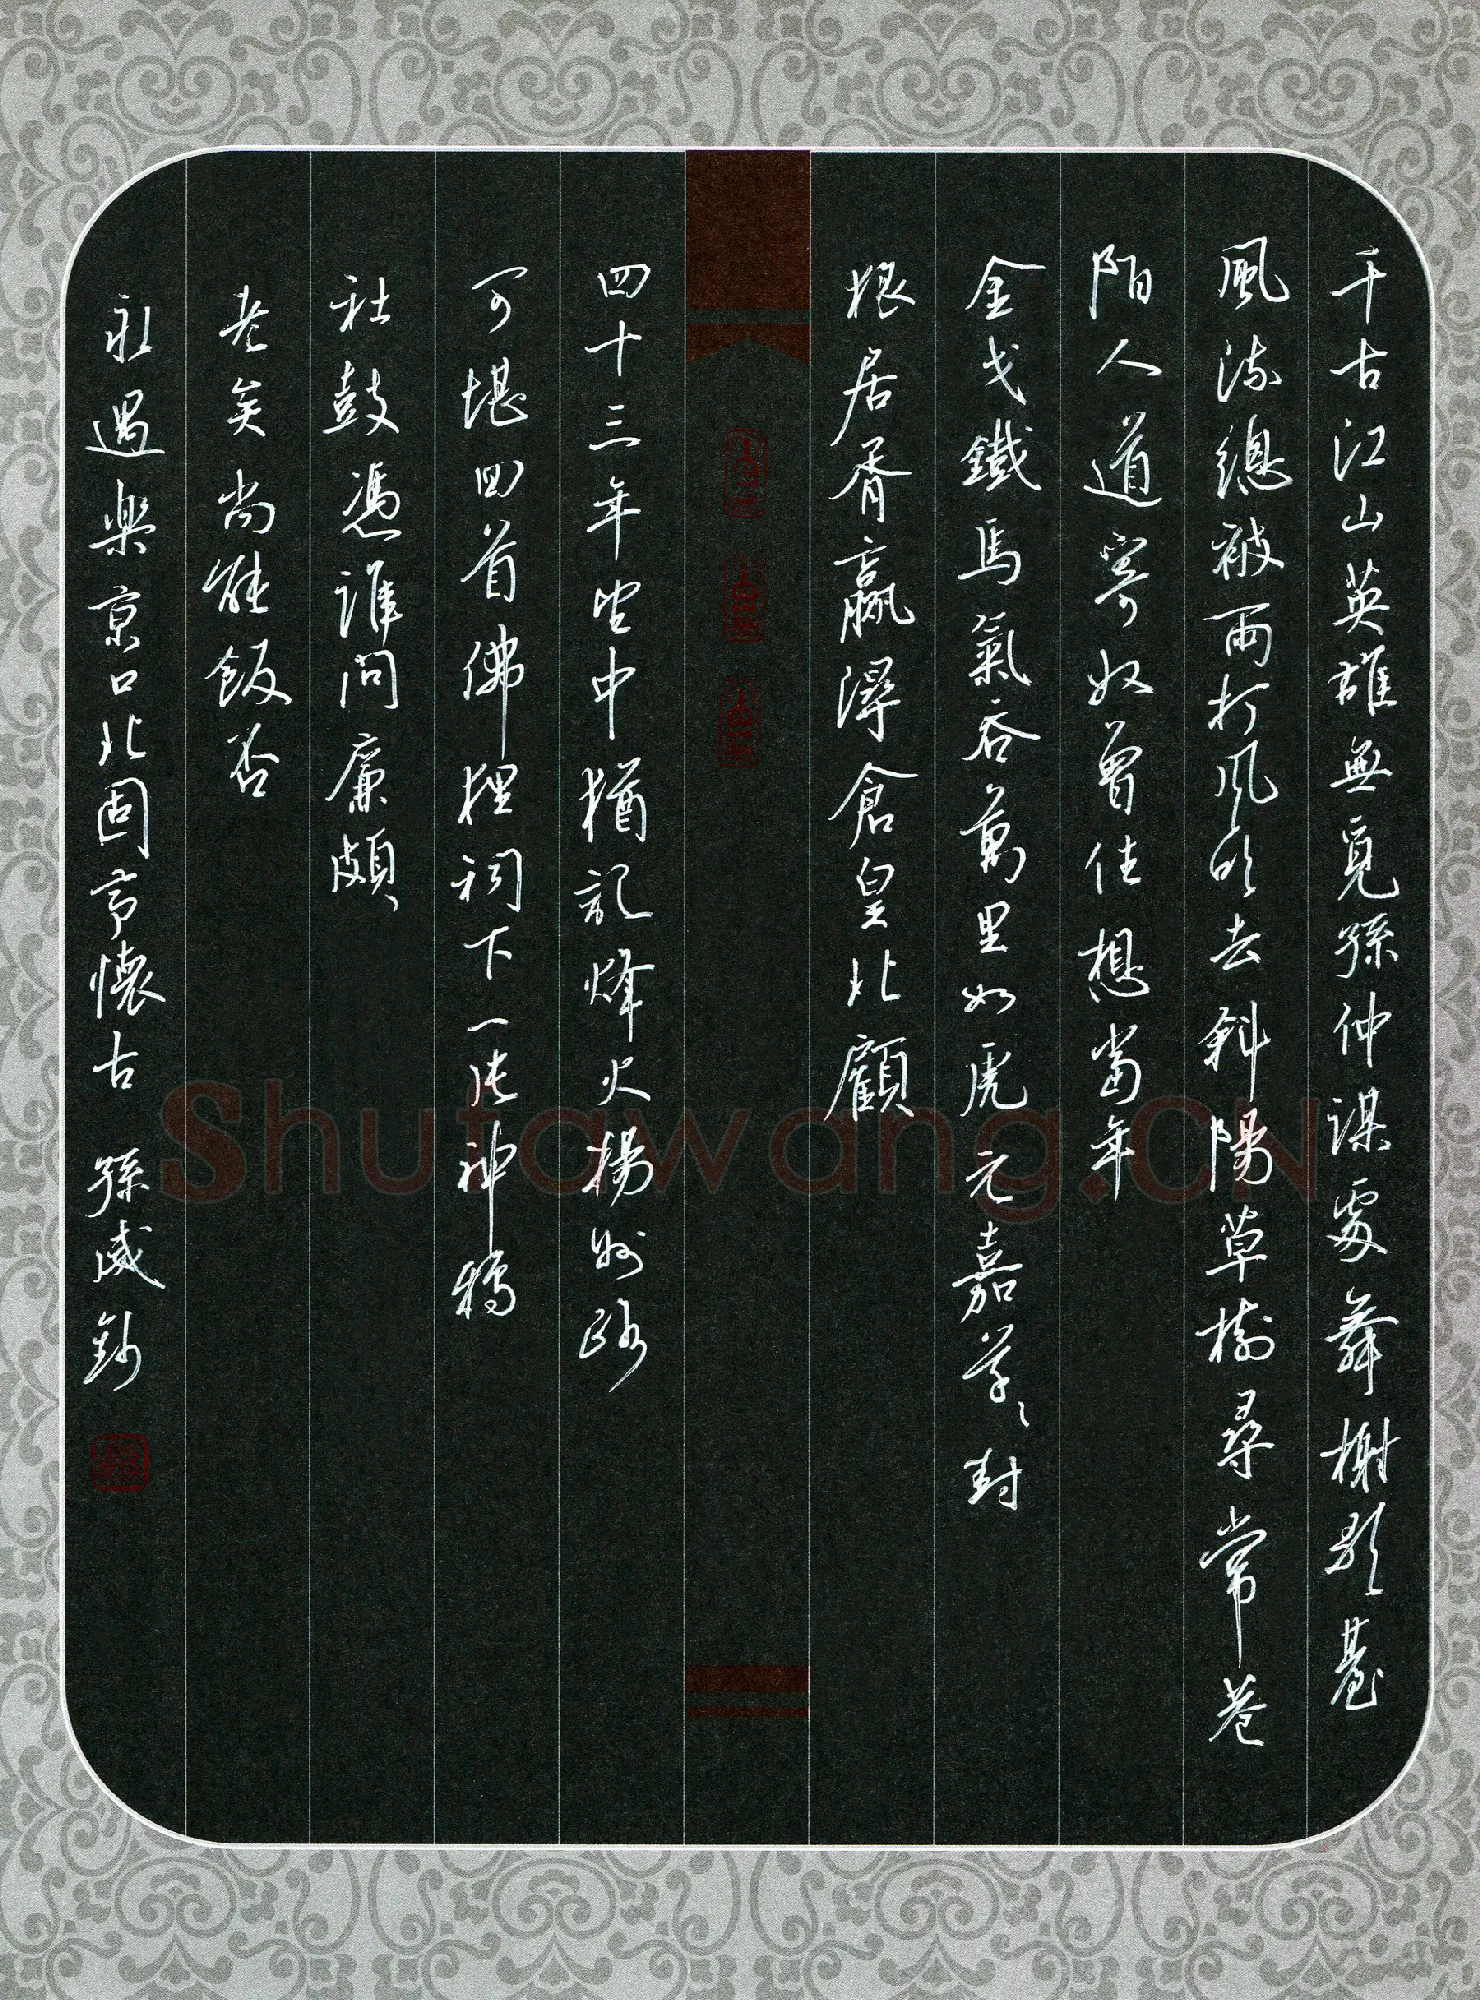 千古江山英雄無覓孫仲謀處舞榭歌臺
風流總被雨打風吹去斜陽草樹尋常巷
陌人道寄奴曾住想當年
金戈鐵馬氣吞萬里如虎元嘉草草封
狼居胥贏得倉皇北顧
四十三年望中猶記烽火揚州路
可堪回首佛狸祠下一片神鴉
社鼓憑誰問廉頗
老矣尚能飯否
永遇樂京口北固亭懷古 孫咸鈔
Shufawang.CN